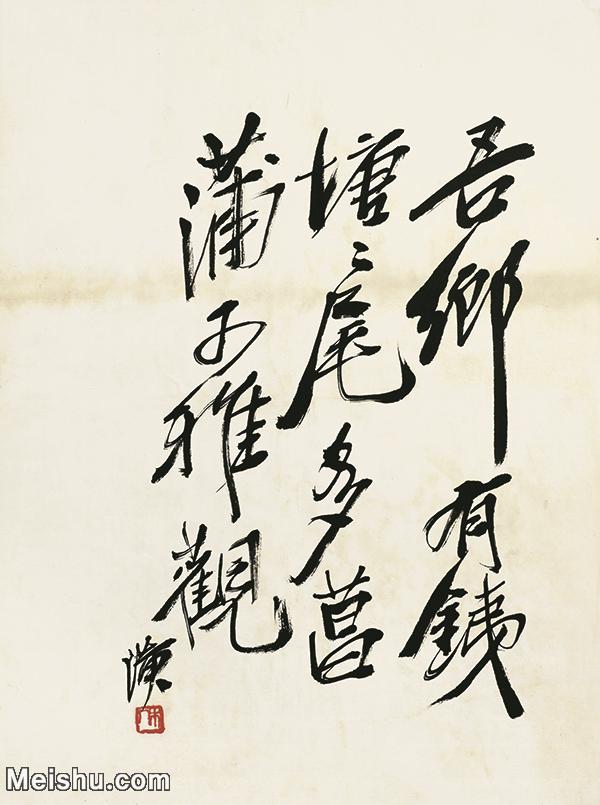 吾鄉有銕
塘〻尾多菖
蒲可雅觀
璜
Meishu.com